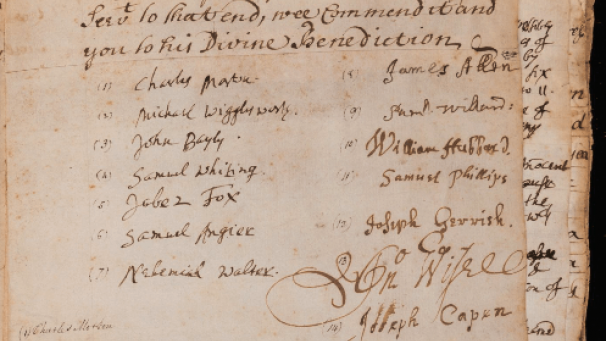 Serv to that end, wee Commend it and
you to his Divine Benediction
(1) Charles Morton.
(2) Michael Wigglesworth.
(3) John Bayly.
(4) Samuel Whiting.
(5) Jabez Fox
(6) Samuel Angier
(7) Nehemiah Walter.
(8) James Allen
(9) Saml. Willard:
(10) William Hubbard.
(11) Samuel Phillips
(12) Joseph Gerrish.
(13) Jno Wise
(14) Joseph Capen
(1) Charles Morton
of
by
six
of
the
of